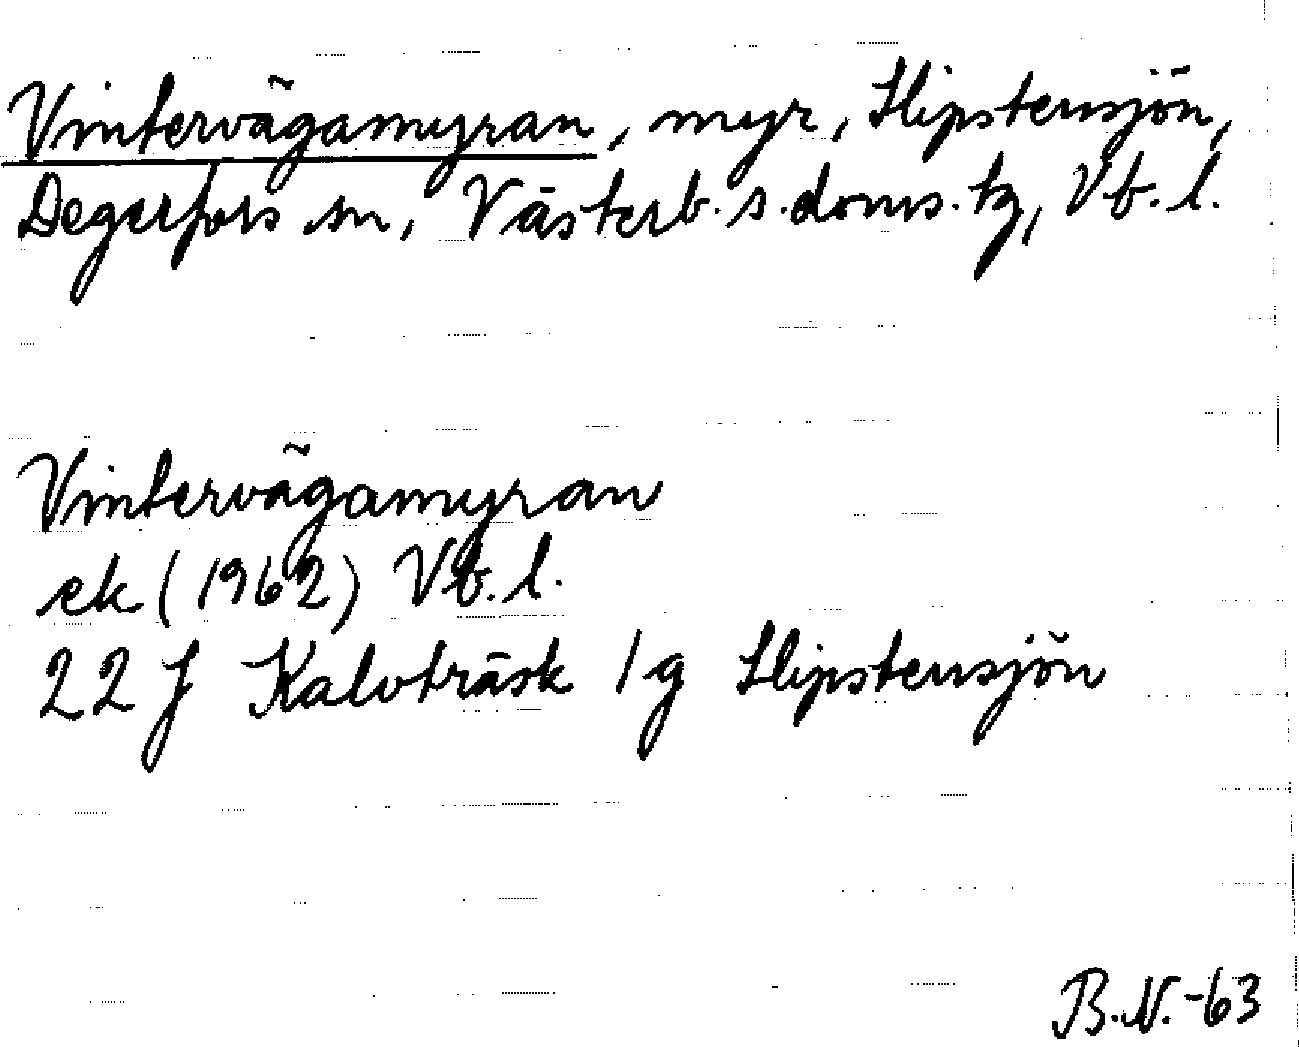 Vintervägamyran, myr, Slipstensjön,
Degerfors sn, Västerb. s. doms. tg, Vb. l.
Vintervägamyran
ek (1962) Vb. l.
22 J Kalvträsk 1 g Slipstensjön
B.N.-63